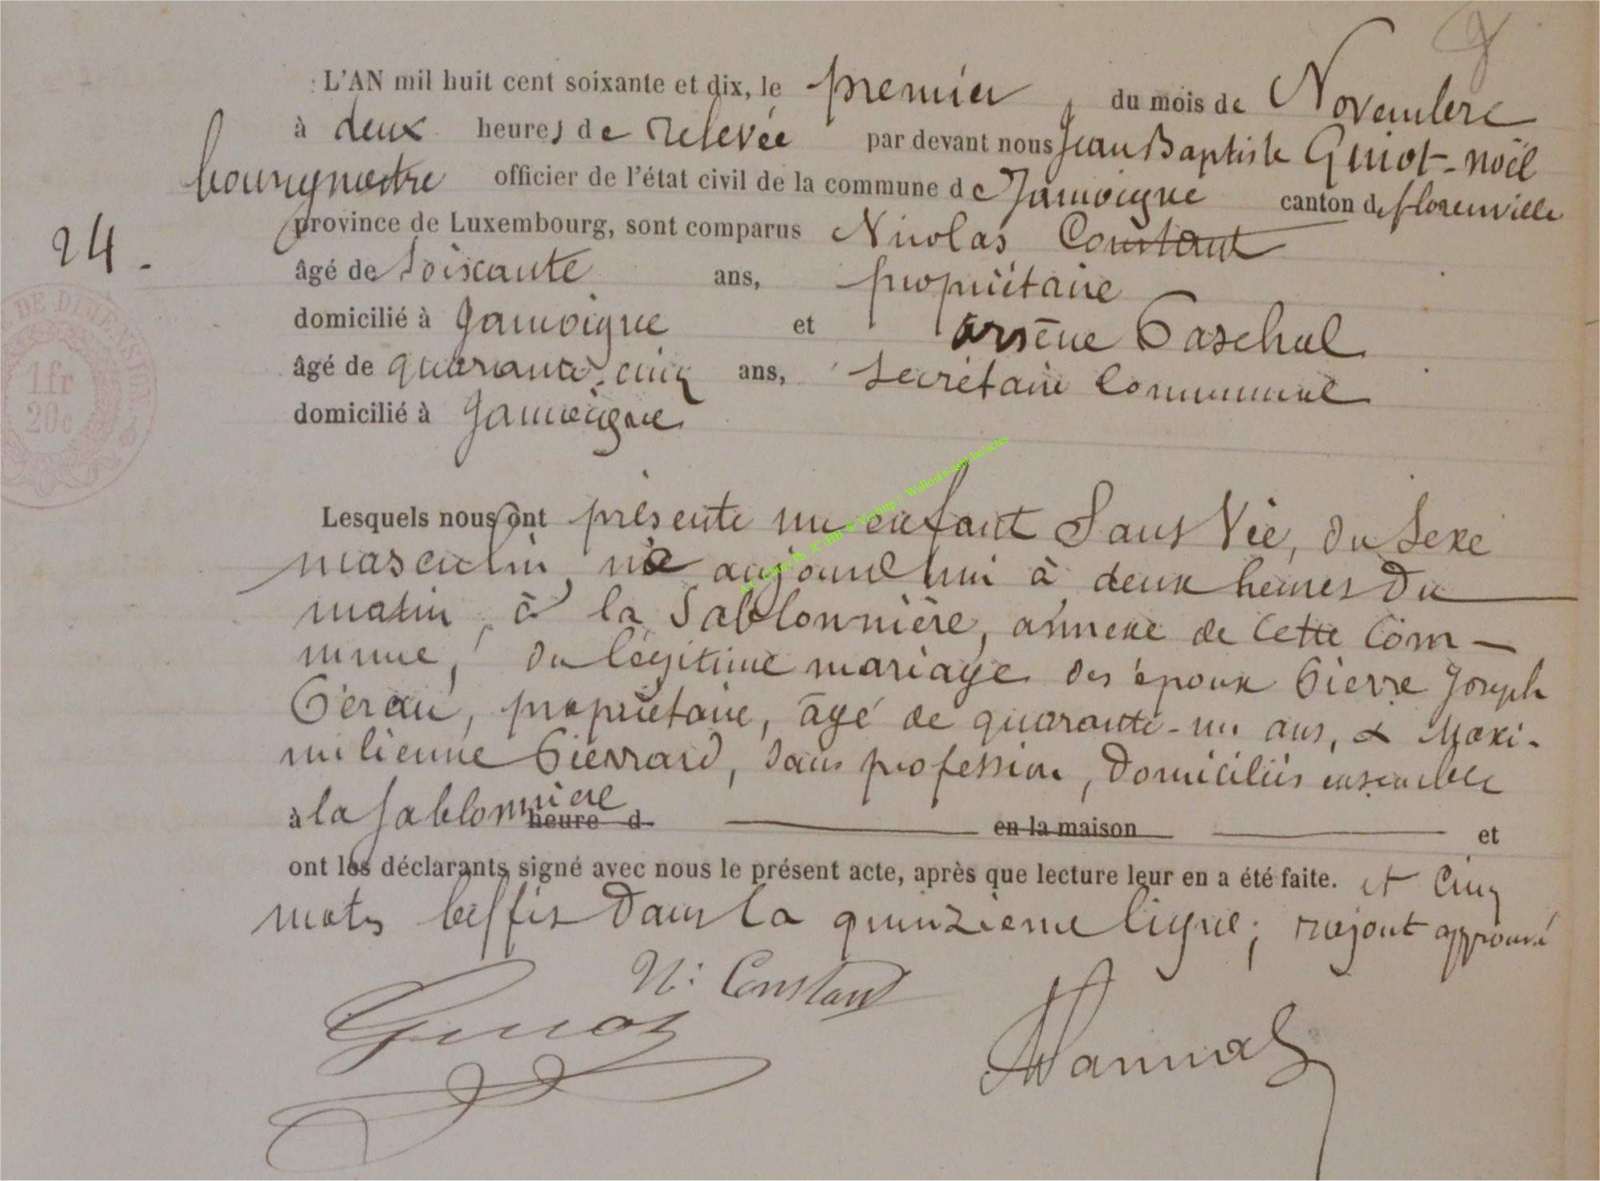 L'AN mil huit cent soixante et dix, le premier du mois de Novembre
à deux heures de relevée par devant nous Jean Baptiste Guiot-noël
bourgmestre officier de l'état civil de la commune de Jamoigne canton de florenville
24. province de Luxembourg, sont comparus Nicolas Constant
âgé de soixante ans, propriétaire
domicilié à Jamoigne et arsène Paschal
âgé de quarante-cinq ans, secrétaire Communal
domicilié à Jamoigne
Lesquels nous ont présenté un enfant Sans Vie, du Sexe
masculin, né aujourd'hui à deux heures du
matin, à la Sablonnière, annexe de cette Com-
mune, du légitime mariage des époux Pierre Joseph
propriétaire, âgé de quarante-un ans, & Maxi-
milienne Pierrard, sans profession, domiciliés ensemble
à la Sablonnière heure d en la maison et
ont les déclarants signé avec nous le présent acte, après que lecture leur en a été faite. et Cinq
mots biffés dans la quinzième ligne; rajout approuvé
N: Constant
Guiot
DE DIMENSION
1fr
20c